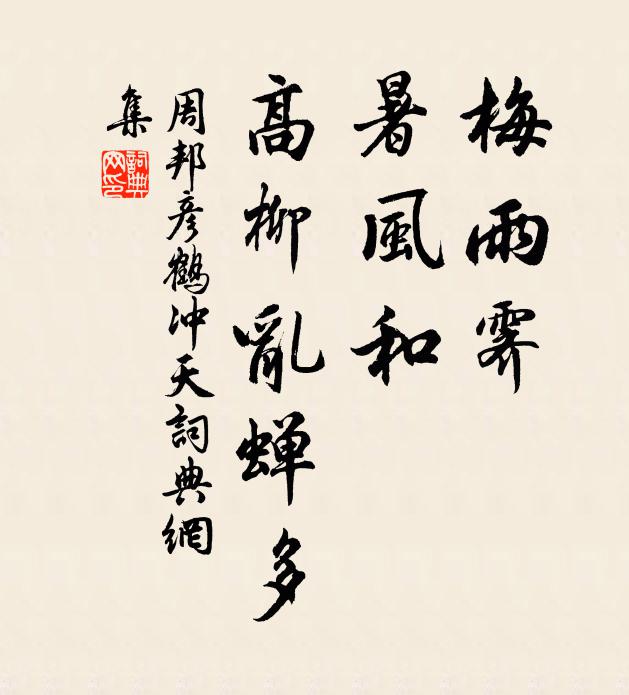 梅雨霽
暑風和
高柳亂蟬多
周邦彥鶴冲天詞典網
集
詞典網印